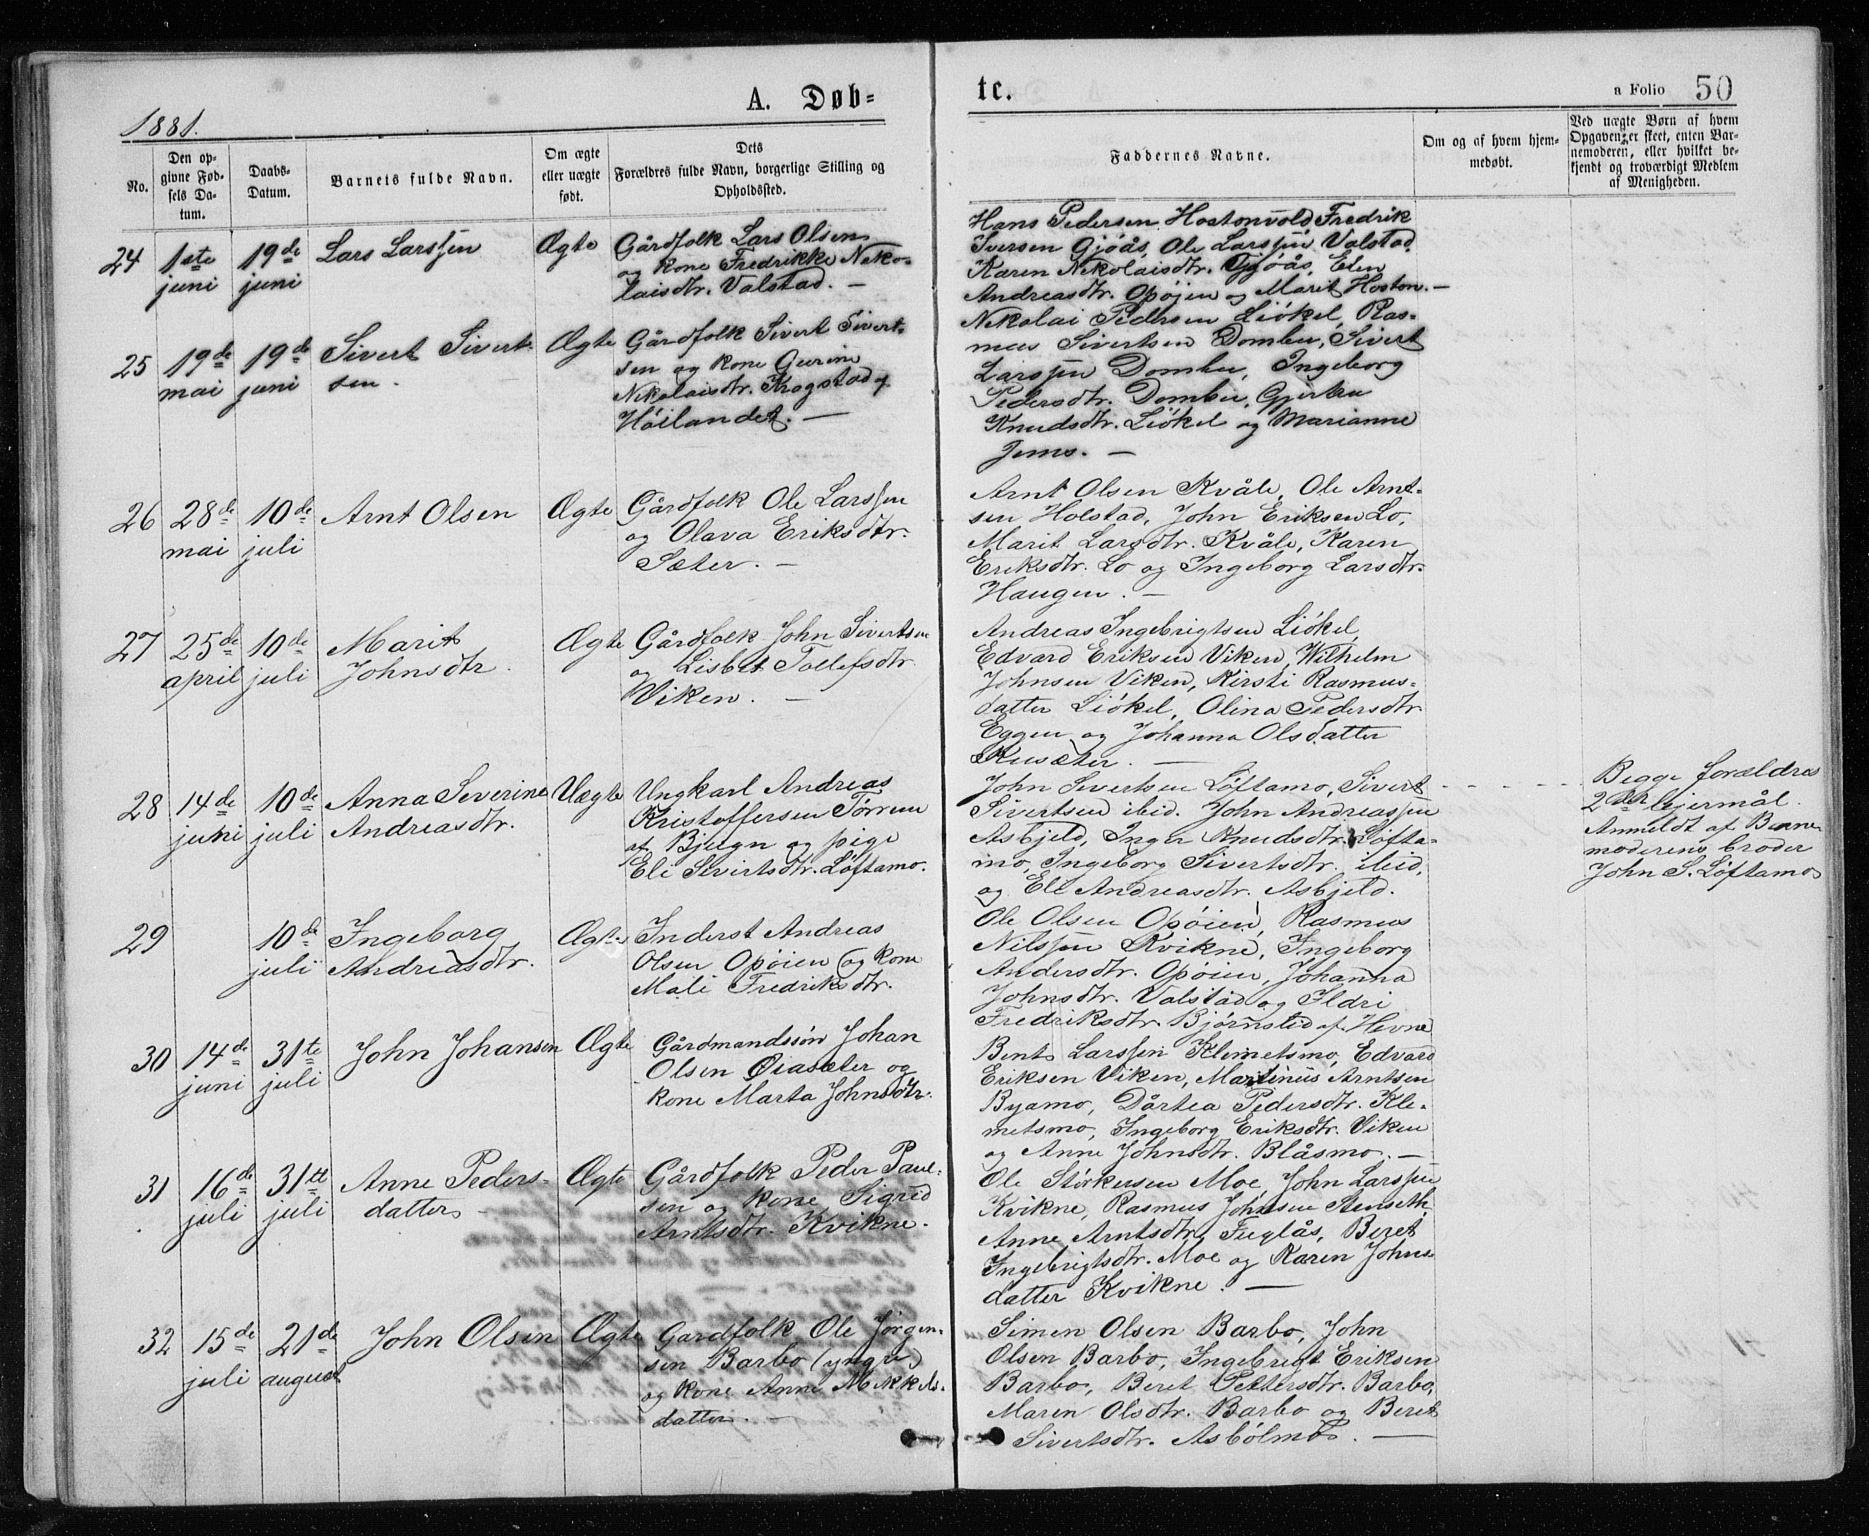 1881.
A. Døb-
tc.
a Folio 50
No.
Den op-
givne Fød-
sels Da-
tum.
Daabs-
Datum.
Barnets fulde Navn.
Om ægte
eller uægte
født.
Dets
Forældres fulde Navn, borgerlige Stilling og
Opholdssted.
Faddernes Navne.
Om og af hvem hjem-
medøbt.
Ved uægte Børn af hvem
Opgaven er skeet, enten Bar-
nemoderen, eller hvilket be-
kjendt og troværdigt Medlem
af Menigheden.
24
1ste
juni
19de
juni
Lars Larssen
Ægte
Gårdfolk Lars Olsen
og kone Fredrikke Niko-
laisdtr. Valstad. —
Hans Pedersen Hostonvold Fredrik
Iversen Gjöås, Ole Larssen Valstad
Karen Nikolaisdtr. Gjöås, Elen
Andreasdtr. Opöjen og Marit Hoston. —
25
19de
mai
19de
juni
Sivert Sivert-
sen.
Ægte
Gårdfolk Sivert Sivert-
sen og kone Gurine
Nikolaisdtr. Krogstad af
Höilandet. —
Nikolai Pedersen Liökel, Ras-
mus Sivertsen Dombu, Sivert
Larssen Dombu, Ingeborg
Pedersdtr. Dombu, Gjertru
Knudsdtr. Liökel og Marianne
Jems. —
26
28de
mai
10de
juli
Arnt Olsen
Ægte
Gårdfolk Ole Larssen
og Olava Eriksdtr.
Sæter. —
Arnt Olsen Kvåle, Ole Arnt-
sen Holstad, John Eriksen Lo,
Marit Larsdtr. Kvåle, Karen
Eriksdtr. Lo og Ingeborg Larsdtr.
Haugen. —
27
25de
april
10de
juli
Marit
Johnsdtr.
Ægte
Gårdfolk John Sivertsen
og Lisbet Tollefsdtr.
Viken. —
Andreas Ingebrigtsen Liökel,
Edvard Eriksen Viken, Wilhelm
Johnsen Viken, Kirsti Rasmus-
datter Liökel, Olina Pedersdtr.
Eggen og Johanna Olsdatter
Kusæter. —
28
14de
juni
10de
juli
Anna Severine
Andreasdtr.
Uægte
Ungkarl Andreas
Kristoffersen Törrem
af Bjugn og pige
Eli Sivertsdtr. Löftamo.
John Sivertsen Löftamo, Sivert
Sivertsen ibid. John Andreassen
Asbjeld, Inger Knudsdtr. Löfta-
mo, Ingeborg Sivertsdtr. ibid,
og Eli Andreasdtr. Asbjeld.
Begge forældres
2det leiermål.
Anmeldt af Barne-
moderens broder
John S. Löftamo
29
10de
juli
Ingeborg
Andreasdtr.
Ægte
Inderst Andreas
Olsen Opöien og kone
Mali Fredriksdtr.
Ole Olsen Opöien, Rasmus
Nilssen Kvikne, Ingeborg
Andersdtr. Opöien, Johanna
Johnsdtr. Valstad og Ildri
Fredriksdtr. Björnslid af Hevne
30
14de
juni
31te
juli
John Johansen
Ægte
Gårdmandssön Johan
Olsen Øiasæter og
kone Marta Johnsdtr.
Bent Larssen Klemetsmo, Edvard
Eriksen Viken, Martinus Arntsen
Byamo, Dårtea Pedersdtr. Kle-
metsmo, Ingeborg Eriksdtr. Viken
og Anne Johnsdtr. Blåsmo. —
31
16de
juli
31te
juli
Anne Peders-
datter
Ægte
Gårdfolk Peder Paul-
sen og kone Sigrid
Arntsdtr. Kvikne.
Ole Störkersen Moe, John Larssen
Kvikne, Rasmus Johnsen Stenseth,
Anne Arntsdtr. Fuglås, Beret
Ingebrigtsdtr. Moe og Karen Johns-
datter Kvikne. —
32
15de
juli
21de
august
John Olsen
Ægte
Gårdfolk Ole Jörgen-
sen Barbo (yngre)
og kone Anne Mikkels-
datter. —
Simen Olsen Barbo, John
Olsen Barbo, Ingebrigt Eriksen
Barbo, Beret Pettersdtr. Barbo,
Maren Olsdtr. Barbo og Beret
Sivertsdtr. Asbölmo. —